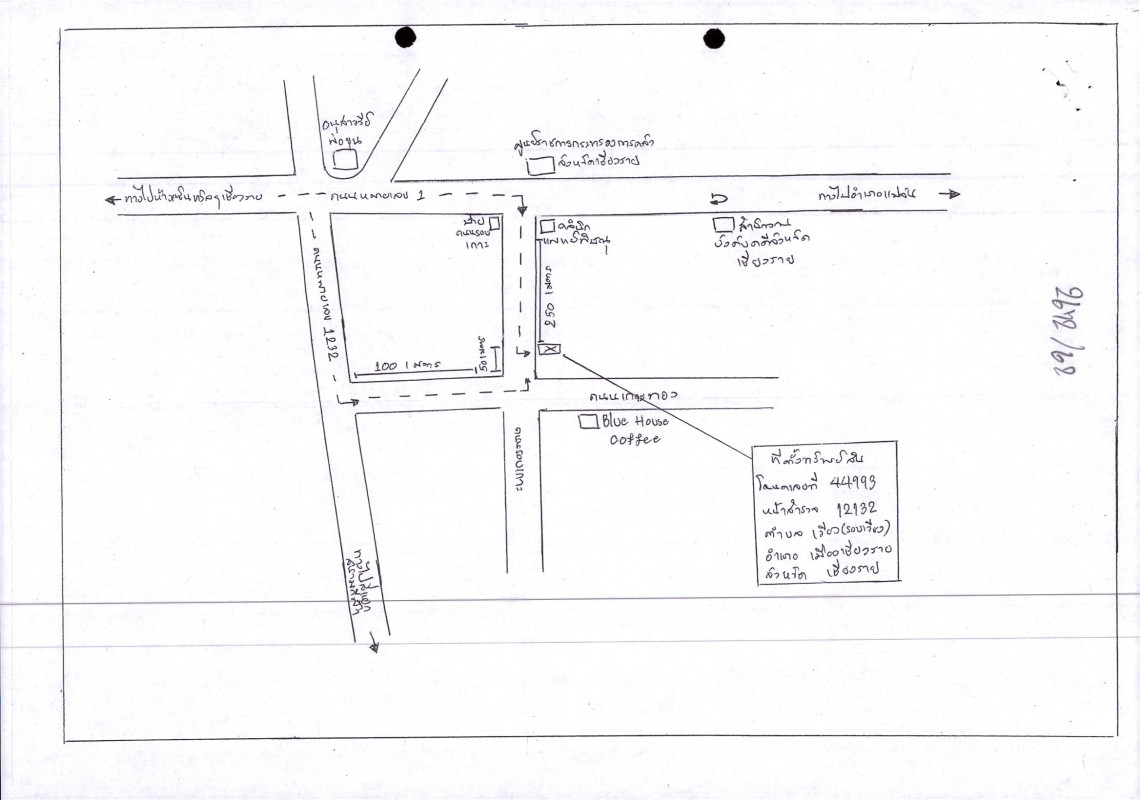 อนุสาวรีย์
พ่อขุน
ศูนย์ราชการกระทรวงการคลัง
จังหวัดเชียงราย
ทางไปห้างเซ็นทรัลฯเชียงราย
ถนนพหลโยธิน 1
ทางไปอำเภอแม่จัน
ป้าย
ถนนรอบ
เกาะ
คลินิก
แพทย์พิเชษฐ
สำนักงาน
บังคับคดีจังหวัด
เชียงราย
ถนนหมายเลข 1232
250 เมตร
50 เมตร
100 เมตร
ถนนเกาะทอง
Blue House
Coffee
ถนนรอบเกาะ
ที่ตั้งทรัพย์สิน
โฉนดเลขที่ 44993
หน้าสำรวจ 12132
ตำบล เวียง(รอบเวียง)
อำเภอ เมืองเชียงราย
จังหวัด เชียงราย